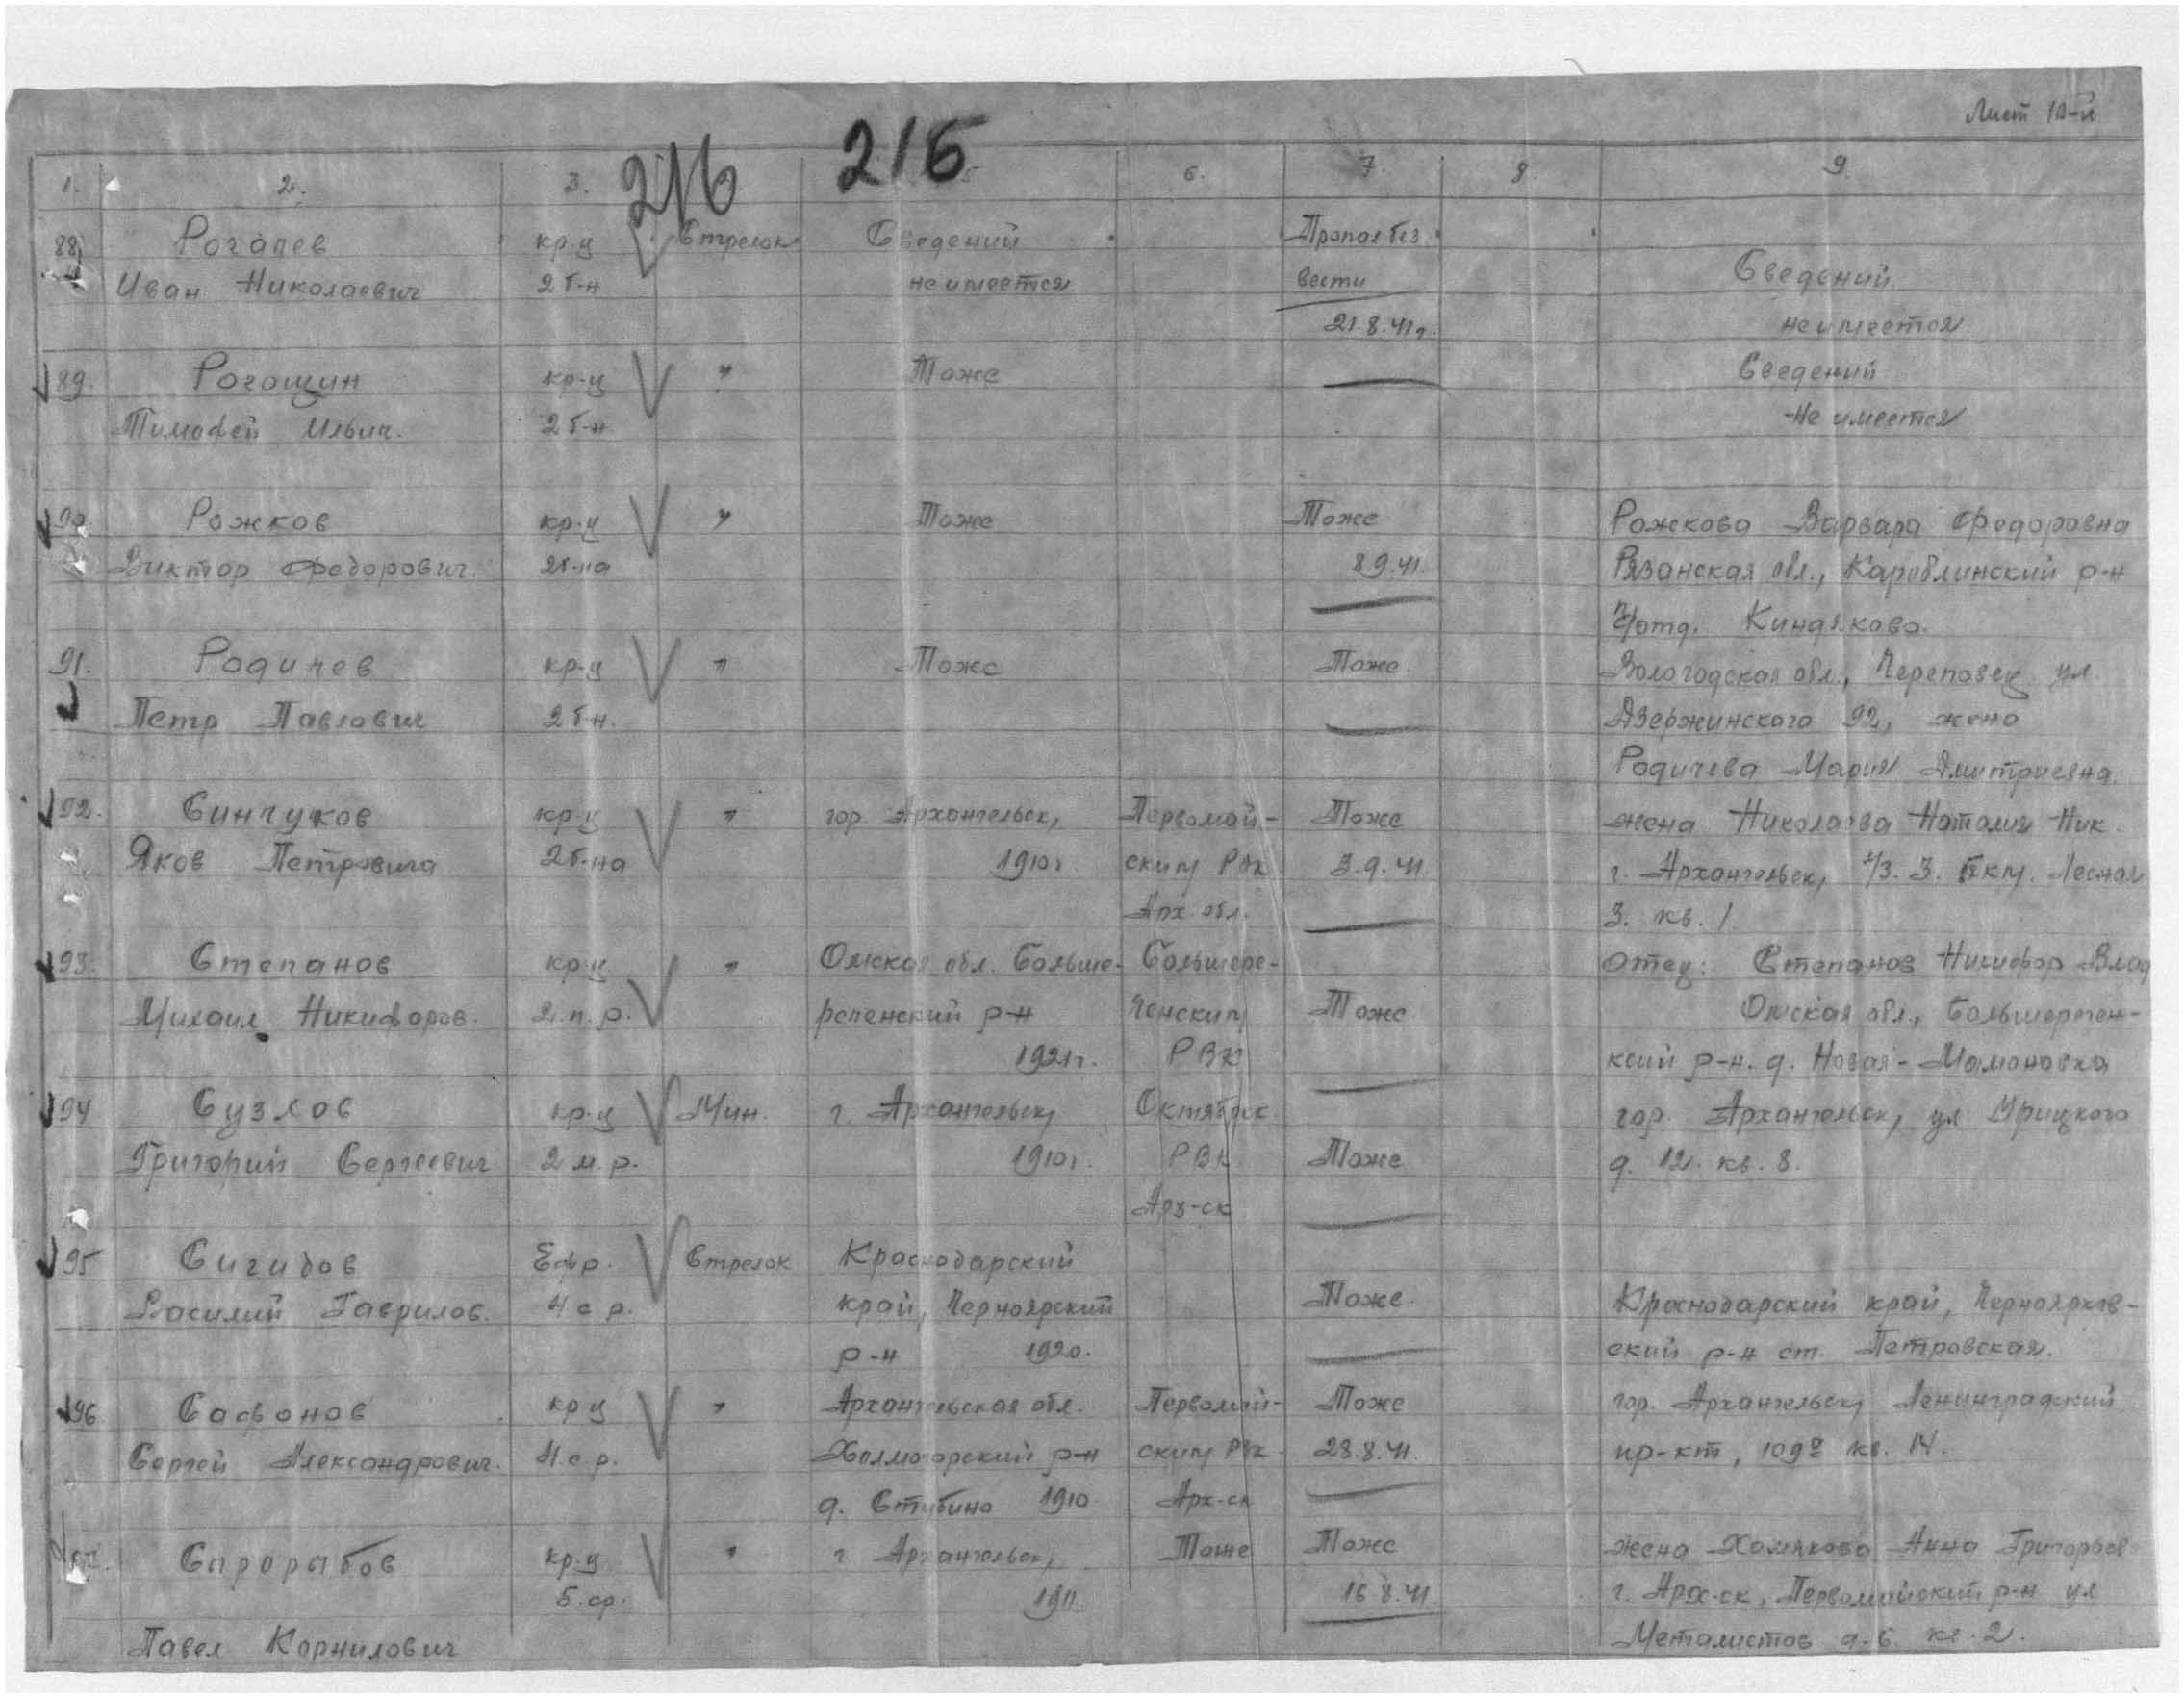 Лист 10-й
216 216
1. 2. 3. 5 6. 7. 8. 9.
88 Рогалев кр-ц Стрелок Сведений Пропал без
Иван Николаевич 2 б-н не имеется вести Сведений
21.8.41г. не имеется
89. Рогощин кр-ц " Тоже Сведений
Тимофей Ильич. 2 б-н Не имеется
90 Рожков кр-ц " Тоже Тоже Рожкова Варвара Федоровна
Виктор Федорович 2б-на 8 9.41. Рязанская обл., Кароблинский р-н
п/отд. Киндяково.
91. Родичев кр-ц " Тоже Тоже. Вологодская обл., Череповец ул.
Петр Павлович 2 б-н. Дзержинского 92, жена
Родичева Мария Дмитриевна.
92. Синчуков кр-ц " гор Архангельск, Первомай- Тоже жена Николаева Наталия Ник.
Яков Петровича 2б-на 1910г ским РВК 3.9.41 г. Архангельск, л/з. 3. Лесная
Арх обл. 3. кв. 1
93. Степанов кр-ц " Омская обл. Больше- Большере- отец: Степанов Никифор Влад
Михаил Никифоров. 2.п.р. реченский р-н ченским Тоже Омская обл., Большеречен-
1921г. РВК ксий р-н. д. Новая-Мамоновка
94 Сузлов кр-ц Мин. г. Архангельск, Октябрск. гор. Архангельск, ул Урицкого
Григорий Сергеевич 2 м.р. 1910г. РВК Тоже д. 12. кв. 8.
Арх-ск
95 Сигидов Ефр. Стрелок Краснодарский
Василий Гаврилов. 4 с р. край, Черноярский Тоже. Краснодарский край, Черноярков-
р-н 1920. ский р-н ст. Петровская.
96 Сафонов кр ц " Архангельская обл. Первомай- Тоже гор. Архангельск, Ленинградский
Сергей Александрович. 4.с р. Холмогорский р-н ским РВК 28.8.41. пр-кт, 109 кв. 14.
д. Стубино 1910 Арх-ск
Старорыбов кр-ц " г Архангельск, Тоже Тоже жена Хомякова Анна Григорьев
5.ср. 1911. 16 8.41 г. Арх-ск, Первомайский р-н ул
Павел Корнилович Металистов д.6 кв.2.